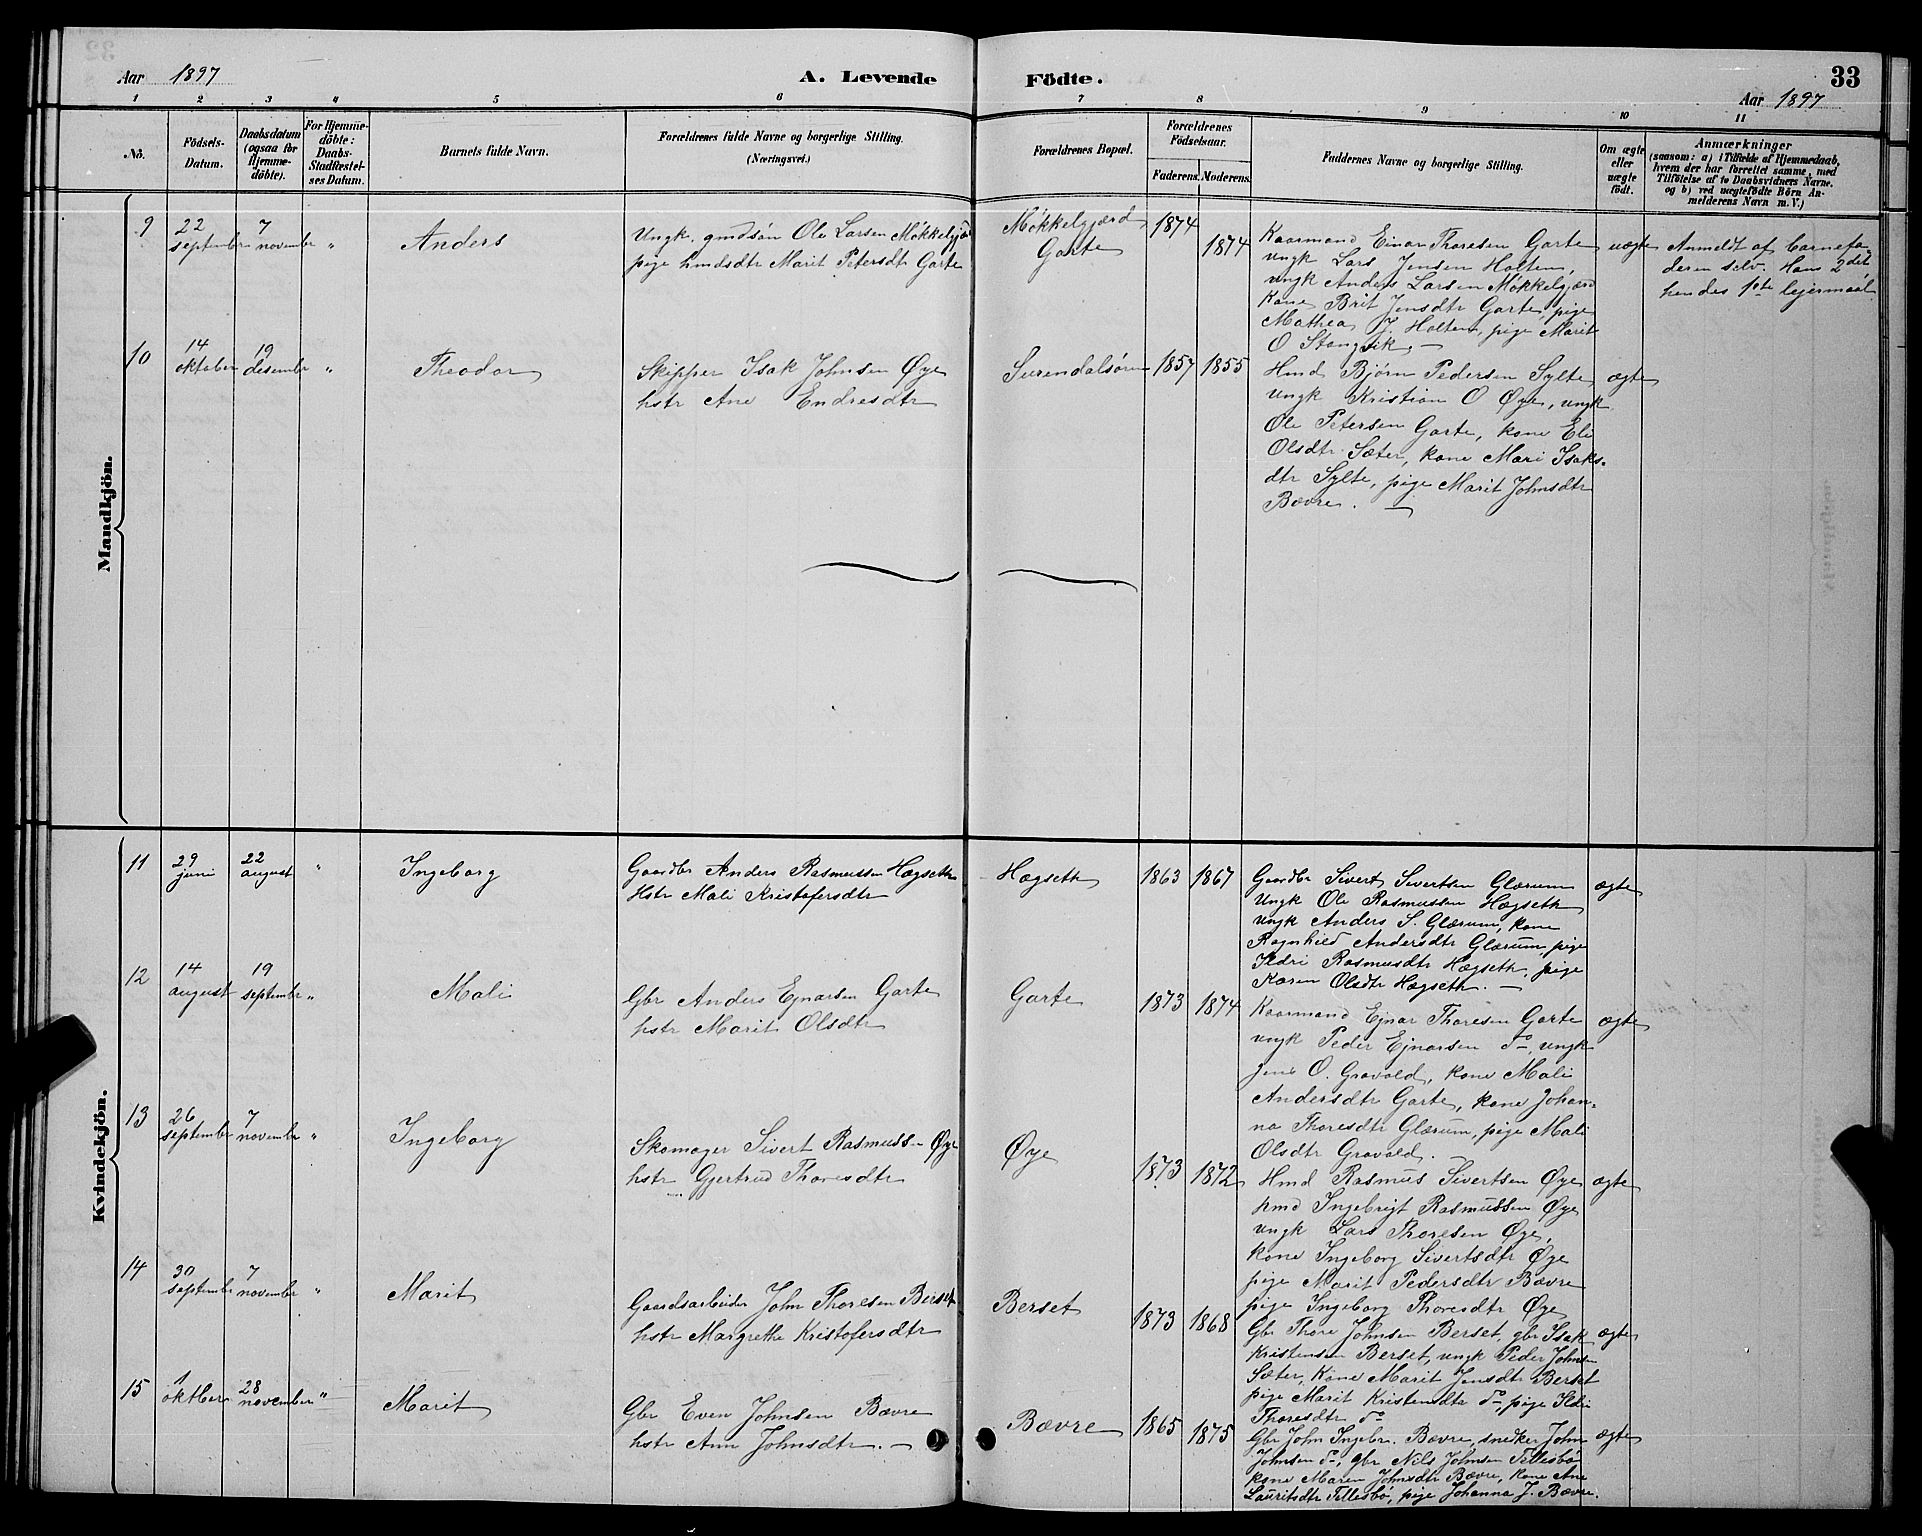 Aar 1897
A. Levende
Födte.
33
Aar 1897
1 2 3 4 5 6 7 8 9 10 11
Nô.
Födsels-
Datum.
Daabsdatum
(ogsaa for
Hjemme-
döbte).
For Hjemme-
döbte:
Daabs-
Stadfæstel-
ses Datum.
Barnets fulde Navn.
Forældrenes fulde Navne og borgerlige Stilling.
(Næringsvei.)
Forældrenes Bopæl.
Forældrenes
Födselsaar.
Faderens. Moderens.
Faddernes Navne og borgerlige Stilling.
Om ægte
eller
uægte
födt.
Anmærkninger
(saasom: a) i Tilfælde af Hjemmedaab,
hvem der har forrettet samme, med
Tilföielse af to Daabsvidners Navne,
og b) ved uægtefödte Börn An-
melderens Navn m. V.)
Mandkjön.
9
22
september
7
november
"
Anders
Ungk. gmdsön Ole Larsen Møkkelgjærd
pige hmdsdtr Marit Petersdtr Garte
Møkkelgjærd
Garte
1874
1874
Kaarmand Einar Thoresen Garte
ungk Lars Jensen Holten,
ungk Anders Larsen Møkkelgjærd
Kone Brit Jensdtr Garte, pige
Mathea J. Holten, pige Marit
O Stangvik. —
uægte
Anmeldt af barnefa-
deren selv. Hans 2det
hendes 1ste lejermaal
10
14
oktober
19
desember
"
Theodor
Skipper Isak Johnsen Øye
hstr Ane Endresdtr
Surendalsøren
1857
1855
Hmd Bjørn Pedersen Sylte
ungk Kristian O Øye, ungk
Ole Petersen Garte, kone Eli
Olsdtr Sæter, kone Mari Isaks-
dtr Sylte, pige Marit Johnsdtr
Bævre. —
ægte
Kvindekjön.
11
29
juni
22
august
"
Ingeborg
Gaardbr Anders Rasmussen Hægseth
Hstr Mali Kristofersdtr
Hægseth
1863
1867
Gaardbr Sivert Sivertsen Glærum
Ungk Ole Rasmussen Hægseth
ungk Anders S. Glærum, kone
Ragnhild Andersdtr Glærum, pige
Ildri Rasmusdtr Hægseth, pige
Karen Olsdtr Hægseth. —
ægte
12
14
august
19
september
"
Mali
Gbr Anders Ejnarsen Garte
hstr Marit Olsdtr
Garte
1873
1874
Kaarmand Ejnar Thoresen Garte
ungk Peder Ejnarsen do, ungk
Jens O. Gravold, kone Mali
Andersdtr Garte, kone Johan-
na Thoresdtr Glærum, pige Mali
Olsdtr Gravold. —
ægte
13
26
september
7
november
"
Ingeborg
Skomager Sivert Rasmussen Øye
hstr Gjertrud Thoresdtr
Øye
1873
1872
Hmd Rasmus Sivertsen Øye
hmd Ingebrigt Rasmussen Øye
ungk Lars Thoresen Øye,
kone Ingeborg Sivertsdtr Øye
pige Marit Pedersdtr Bævre
pige Ingeborg Thoresdtr Øye
ægte
14
30
september
7
november
"
Marit
Gaardsarbeider John Thoresen Berset
hstr Margrethe Kristofersdtr
Berset
1873
1868
Gbr Thore Johnsen Berset, gbr Isak
Kristensen Berset, ungk Peder Johnsen
Sæter, Kone Marit Jensdtr Berset
pige Marit Kristensdtr do, pige Ildri
Thoresdtr do
ægte
15
1
oktber
28
november
"
Marit
Gbr Even Johnsen Bævre
hstr Ann Johnsdtr. —
Bævre
1865
1875
Gbr John Ingebr. Bævre, snedker John
Johnsen do, gbr Nils Johnsen Tellesbø
kone Maren Johnsdtr Bævre, kone Ane
Lauritsdtr Tellesbø, pige Johanna J. Bævre.
ægte